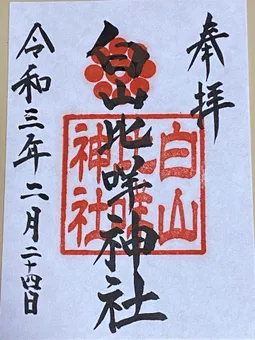 奉拝
白山比咩神社
令和三年二月二十四日
白山
神社